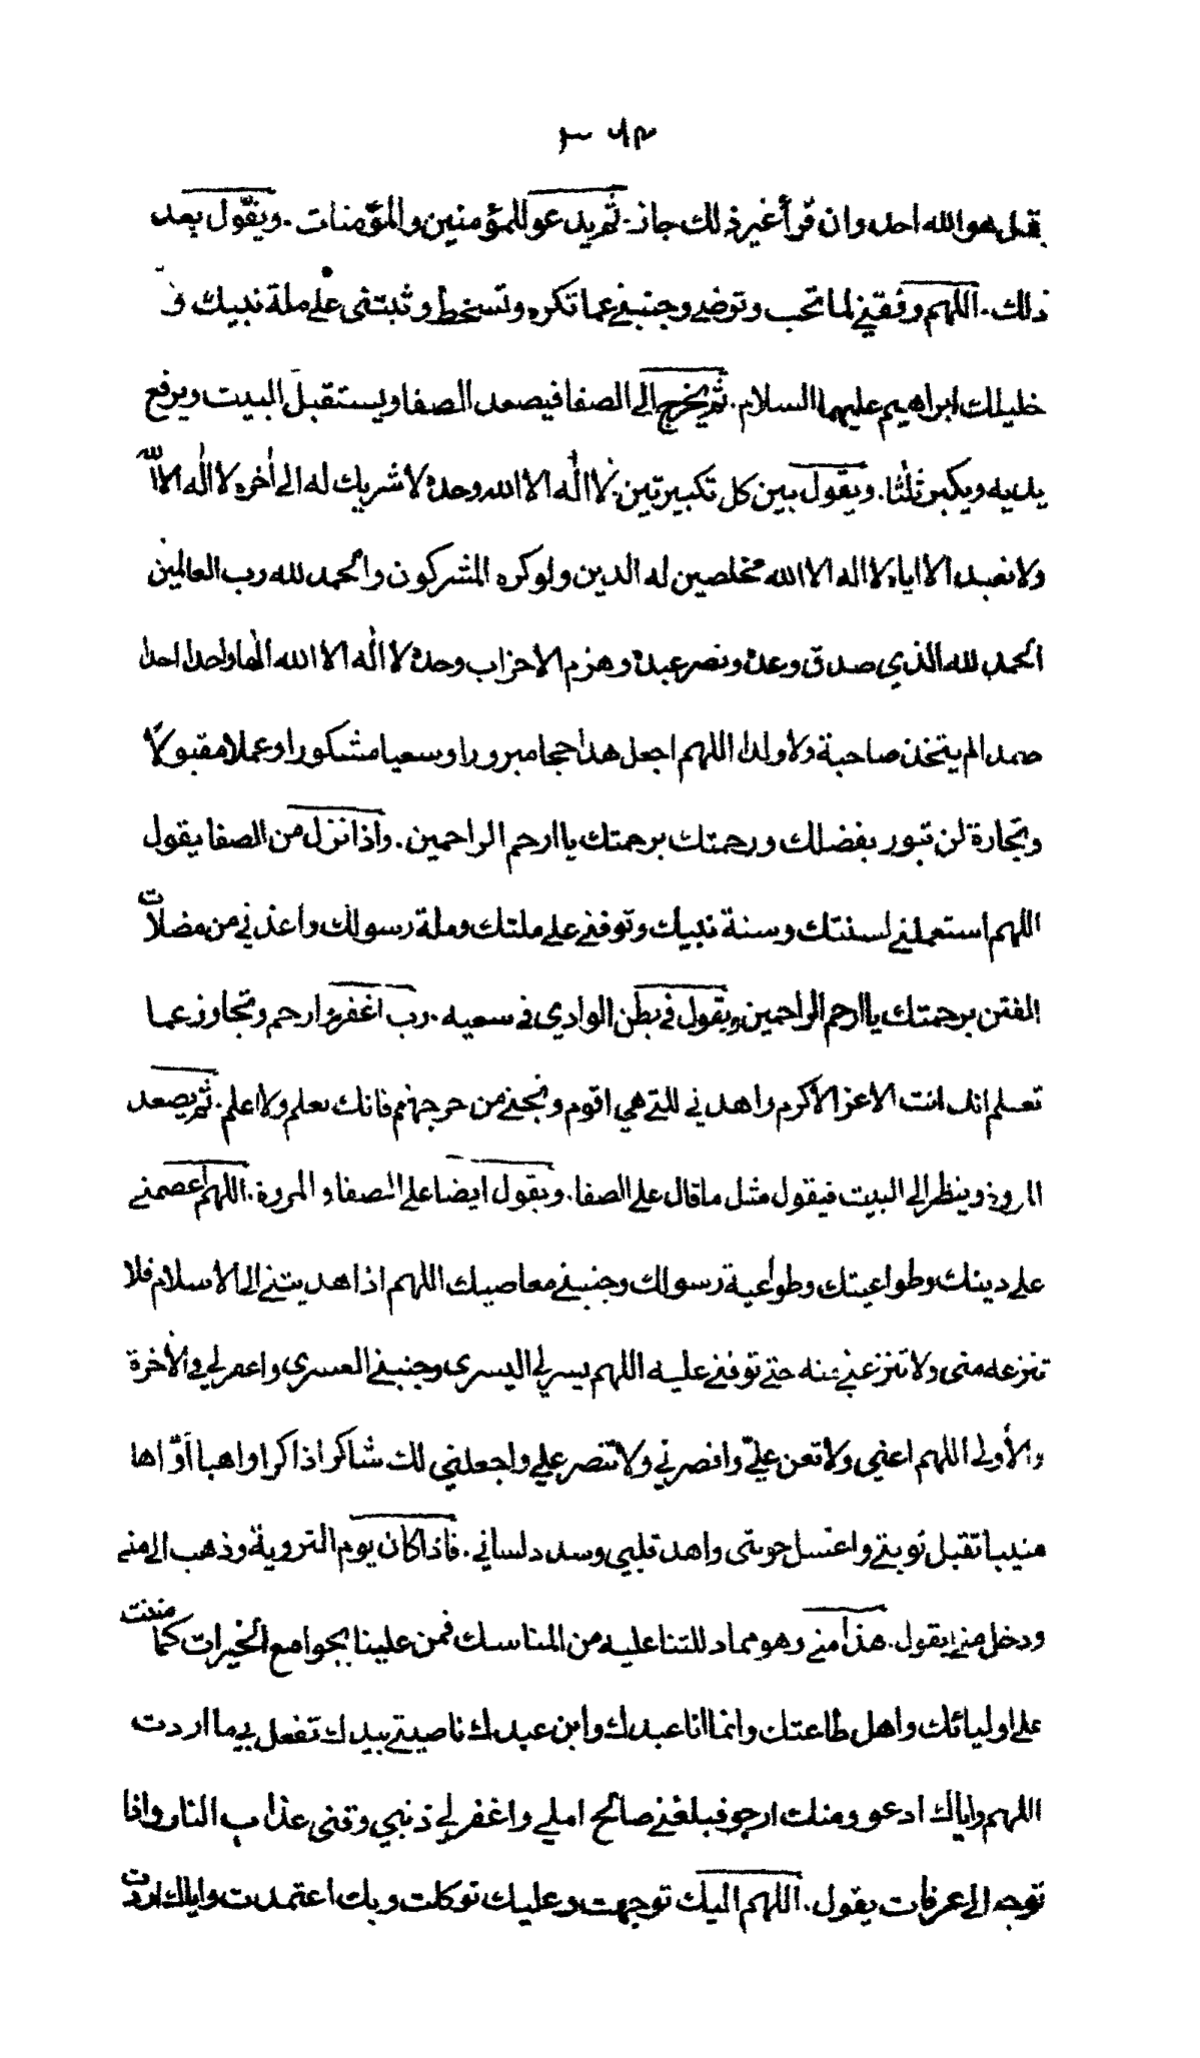 بقل هو الله احد وان قرأ غير ذلك جاز. ثم يدعو للمؤمنين والمؤمنات. ويقول بعد
ذلك. اللهم وفقني لما تحب وترضى وجنبني عما تكره وتسخط وثبتني على ملة نبيك و
خليلك ابراهيم عليهما السلام. ثم يخرج الى الصفا فيصعد الصفا ويستقبل البيت ويرفع
يديه ويكبر ثلثا. ويقول بين كل تكبيرتين. لا اله الا الله وحده لا شريك له الى أخره لا اله الا الله
ولا نعبد الا اياه لا اله الا الله مخلصين له الدين ولو كره المشركون والحمد لله رب العالمين
الحمد لله الذي صدق وعده ونصر عبده وهزم الاحزاب وحده لا اله الا الله الها واحدا احدا
صمدا لم يتخذ صاحبة ولا ولدا اللهم اجعل هذا حجا مبرورا وسعيا مشكورا وعملا مقبولا
وتجارة لن تبور بفضلك ورحمتك برحمتك يا ارحم الراحمين. واذا نزل من الصفا يقول
اللهم استعملني لسنتك وسنة نبيك وتوفني على ملتك وملة رسولك واعذني من مضلات
الفتن برحمتك يا ارحم الراحمين. ويقول في بطن الوادي في سعيه. رب اغفر وارحم وتجاوز عما
تعلم انك انت الاعز الأكرم واهدني للتي هي اقوم ونجني من حر جهنم فانك تعلم ولا اعلم. ثم يصعد
المروة وينظر الى البيت فيقول مثل ما قال على الصفا. ويقول ايضا على الصفا و المروة. اللهم اعصمني
على دينك وطواعيتك وطواعية رسولك وجنبني معاصيك اللهم اذا هديتني الى الاسلام فلا
تنزعه منى ولا تنزعني عنه حتى توفني عليه اللهم يسر لي اليسرى وجنبني العسرى واغفر لي في الأخرة
والأولى اللهم اعني ولا تعن عليّ وانصرني ولا تنصر علي واجعلني لك شاكرا ذاكرا واهبا أوّاها
منيبا تقبل توبتي واغسل حوبتى واهد قلبي وسدد لساني. فاذا كان يوم التروية وذهب الى منى
ودخل منى يقول. هذا منى وهو مما دللتنا عليه من المناسك فمن علينا بجوامع الخيرات كما مننت
على اوليائك واهل طاعتك وانما انا عبدك وابن عبدك ناصيتي بيدك تفعل بي ما اردت
اللهم واياك ادعو ومنك ارجو فبلغني صالح املي واغفر لي ذنبي وقنى عذاب النار واذا
توجه الى عرفات يقول. اللهم اليك توجهت وعليك توكلت وبك اعتمدت واياك اردت